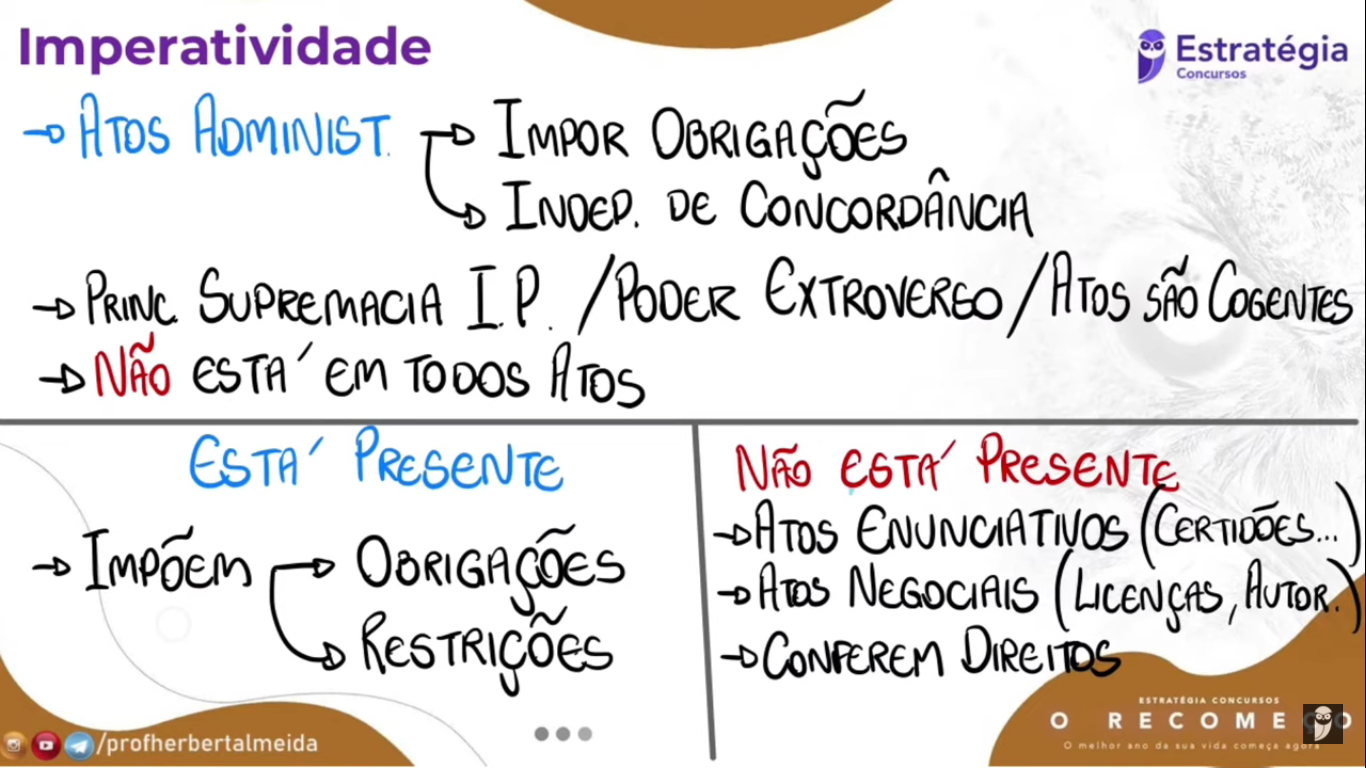 Imperatividade
Estratégia
Concursos
→ ATOS ADMINIST. → IMPOR OBRIGAÇÕES
→ INDEP. DE CONCORDÂNCIA
→ PRINC. SUPREMACIA I.P. / PODER EXTROVERSO / ATOS SÃO COGENTES
→ NÃO ESTÁ EM TODOS ATOS
ESTÁ PRESENTE
→ IMPÕEM → OBRIGAÇÕES
→ RESTRIÇÕES
NÃO ESTÁ PRESENTE
→ ATOS ENUNCIATIVOS (CERTIDÕES...)
→ ATOS NEGOCIAIS (LICENÇAS, AUTOR.)
→ CONFEREM DIREITOS
/profherbertalmeida
ESTRATÉGIA CONCURSOS
O RECOMEÇO
O melhor ano da sua vida começa agora